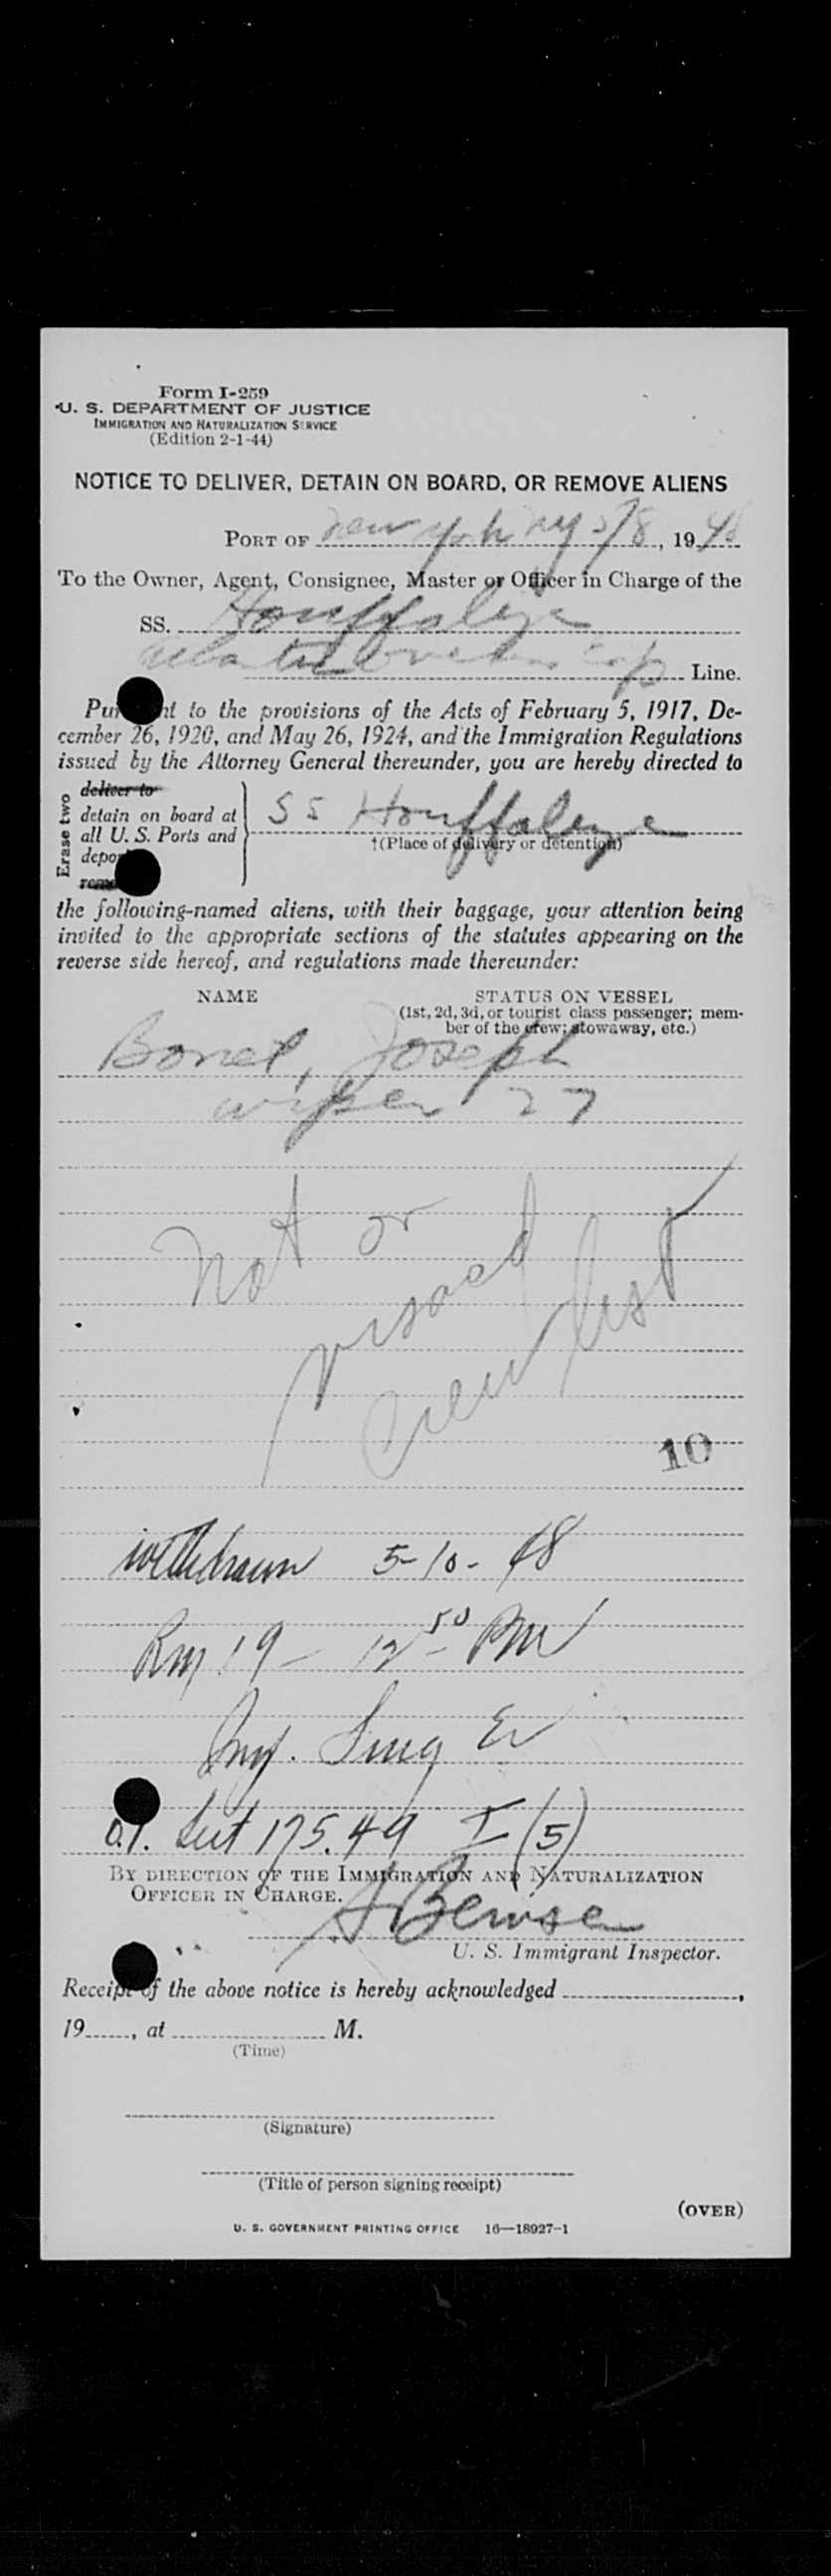 Form I-259
U. S. DEPARTMENT OF JUSTICE
IMMIGRATION AND NATURALIZATION SERVICE
(Edition 2-1-44)
NOTICE TO DELIVER, DETAIN ON BOARD, OR REMOVE ALIENS
PORT OF New York NY 5/8, 1948
To the Owner, Agent, Consignee, Master or Officer in Charge of the
SS. Houffalize
Line.
to the provisions of the Acts of February 5, 1917, De-
cember 26, 1920, and May 26, 1924, and the Immigration Regulations
issued by the Attorney General thereunder, you are hereby directed to
Erase two
deliver to
detain on board at
all U. S. Ports and
SS Houffalize
†(Place of delivery or detention)
the following-named aliens, with their baggage, your attention being
invited to the appropriate sections of the statutes appearing on the
reverse side hereof, and regulations made thereunder:
NAME STATUS ON VESSEL
(1st, 2d, 3d, or tourist class passenger; mem-
ber of the crew; stowaway, etc.)
Bonel, Joseph
wiper 27
not on
visaed
crew list
10
withdrawn 5-10-48
Rm 19 - 12 50 PM
175.49 I (5)
BY DIRECTION OF THE IMMIGRATION AND NATURALIZATION
OFFICER IN CHARGE.
U. S. Immigrant Inspector.
Receipt of the above notice is hereby acknowledged
19, at M.
(Time)
(Signature)
(Title of person signing receipt)
(OVER)
U. S. GOVERNMENT PRINTING OFFICE 16—18927-1